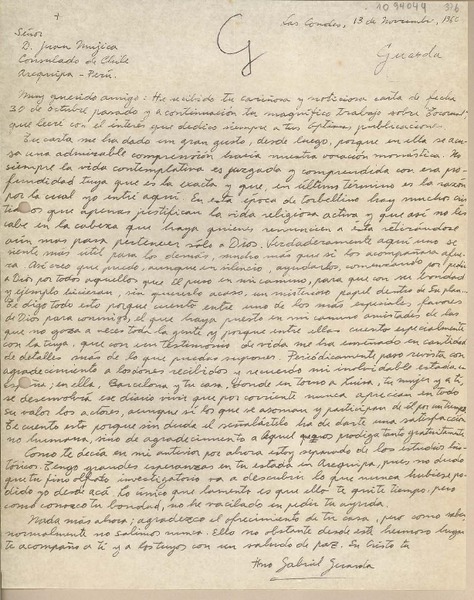 1094044 326
+
Las Condes, 13 de Noviembre, 1960
Señor
D. Juan Mujica
Consulado de Chile
Arequipa - Perú.
G
Guarda
Muy querido amigo: He recibido tu cariñosa y noticiosa carta de fecha
30 de octubre pasado y a continuación tu magnífico trabajo sobre
que leeré con el interés que dedico siempre a tus óptimas publicaciones.
Tu carta me ha dado un gran gusto, desde luego, porque en ella se aco-
sa una admirable comprensión hacia nuestra vocación monástica. No
siempre la vida contemplativa es juzgada y comprendida con esa pro-
fundidad tuya que es la exacta y que, en último término es la razón
por la cual yo entré aquí. En esta época de torbellino hay muchos cris-
tianos que apenas justifican la vida religiosa activa y que así no les
cabe en la cabeza que haya quienes renuncien a esta retirándose
aún más para pertenecer sólo a Dios. Verdaderamente aquí uno se
siente más útil para los demás, mucho más que si los acompañara afue-
ra. Así creo que puedo, aunque en silencio, ayudarlos, comenzando por pedir
a Dios por todos aquellos que El puso en mi camino, para que con su bondad
y ejemplo hicieran, sin quererlo acaso, un misterioso papel dentro de Su plan.
Te digo todo esto porque cuento entre uno de los más especiales favores
de Dios para conmigo, el que haya puesto en mi camino amistades de las
que no goza a veces toda la gente y porque entre ellas cuento especialmente
con la tuya, que con un testimonio de vida me ha enseñado en cantidad
de detalles más de lo que puedas suponer. Periódicamente paso revista con
agradecimiento a los dones recibidos y recuerdo mi inolvidable estada en
España; en ella, Barcelona y tu casa. Donde en torno a Luisa, tu mujer y a ti
se desenvolvía ese diario vivir que por corriente nunca aprecian en todo
su valor los actores, aunque sí los que se asoman y participan de él por un tiempo.
Te cuento esto porque sin duda el ha de darte una satisfacción
no humana, sino de agradecimiento a Aquel que nos prodiga tanto gratuitamente.
Como te decía en mi anterior por ahora estoy separado de los estudios his-
tóricos. Tengo grandes esperanzas en tu estada en Arequipa, pues no dudo
que tu fino olfato investigatorio va a descubrir lo que nunca hubiese po-
dido yo desde acá. Lo único que lamento es que ello te quite tiempo, pero
como conozco tu bondad, no he vacilado en pedir tu ayuda.
Nada más ahora; agradezco el ofrecimiento de tu casa, pero como sabes
normalmente no salimos nunca. Ello no obstante desde este hermoso lugar
te acompaño a ti y a los tuyos con un saludo de paz. En Cristo tu
Hno Gabriel Guarda